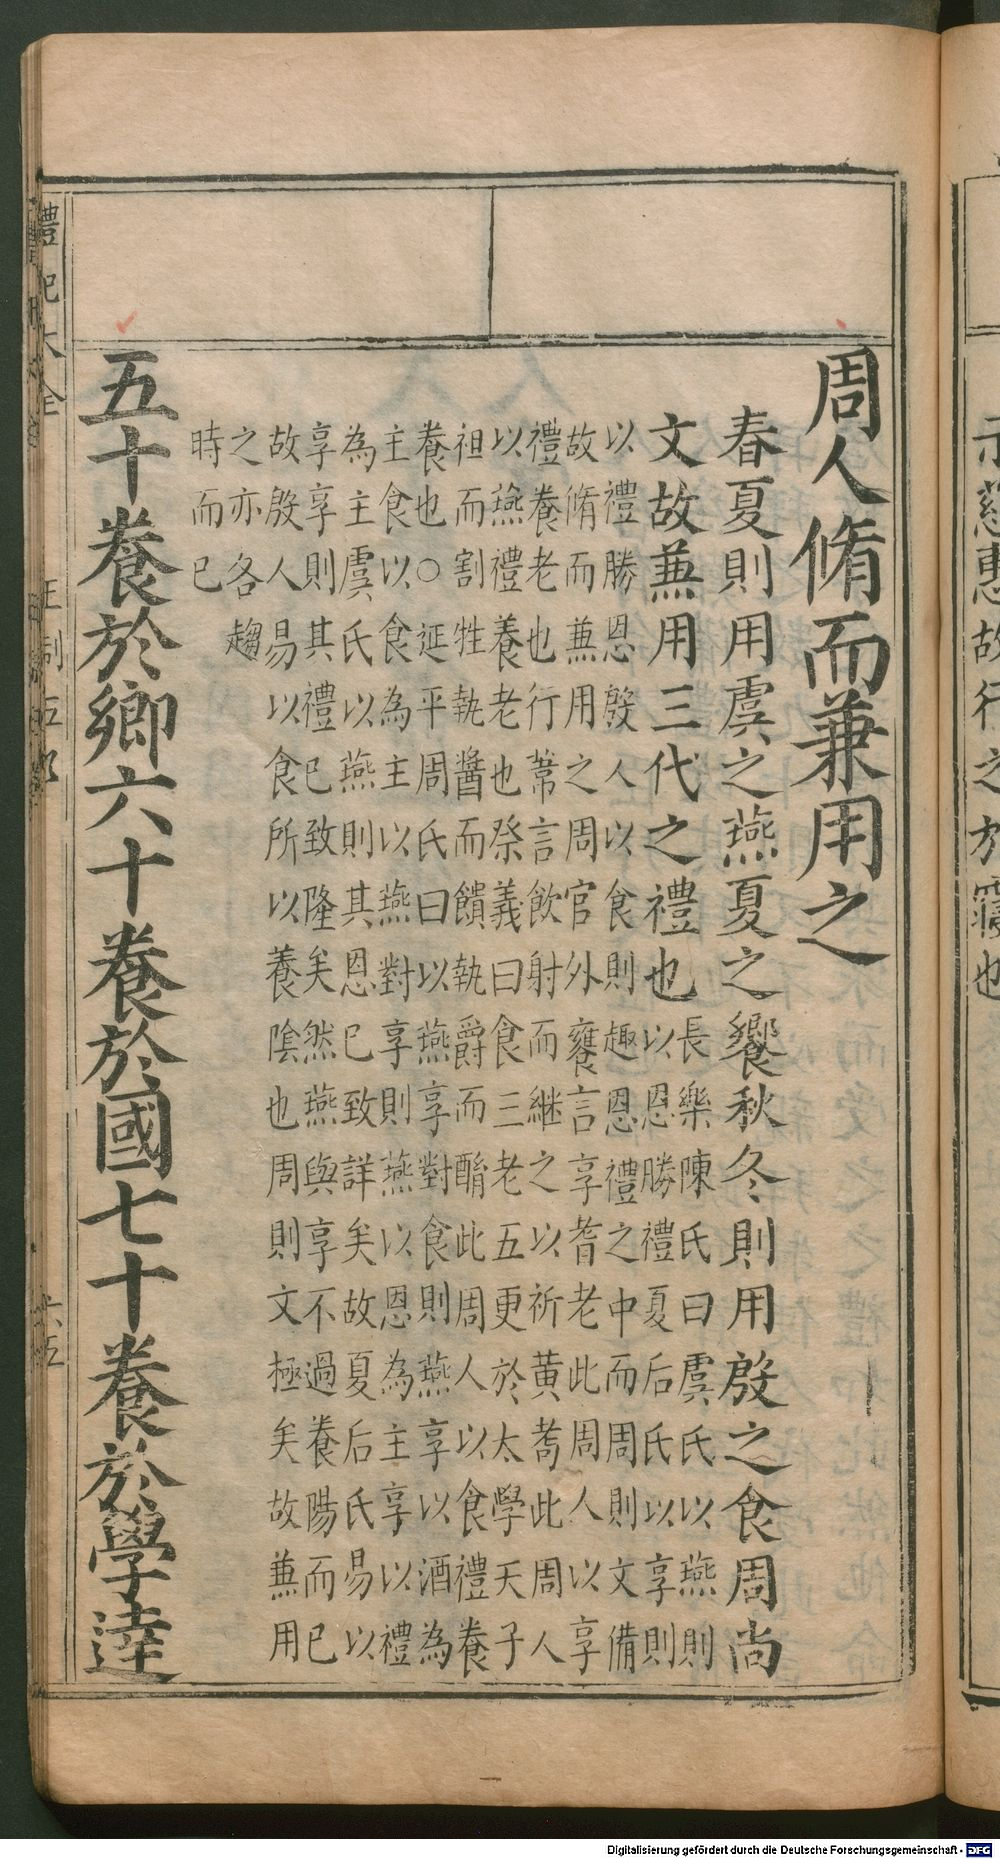 示慈惠故行之於寢也
周人脩而兼用之
春夏則用虞之燕夏之饗秋冬則用殷之食周尚
文故兼用三代之禮也
長樂陳氏曰虞氏以燕則
以恩勝禮夏后氏以享則
以禮勝恩殷人以食則趣恩禮之中而周則文備
故脩而兼用之周官外饔言享耆老此周人以享
禮養老也行葦言飲射而継之以祈黃耇此周人
以燕禮養老也祭義曰食三老五更於太學天子
袒而割牲執醬而饋執爵而酳此周人以食禮養
養也○延平周氏曰以燕享對食則燕享以酒為
主食以食為主以燕對享則燕以恩為主享以禮
為主虞氏以燕則其恩已致詳矣故夏后氏易以
享享則其禮已致隆矣然燕與享不過養陽而已
故殷人易以食所以養陰也周則文極矣故兼用
之亦各趨
時而已
五十養於鄉六十養於國七十養於學達
禮記大全
王制五
六五
Digitalisierung gefördert durch die Deutsche Forschungsgemeinschaft - DFG